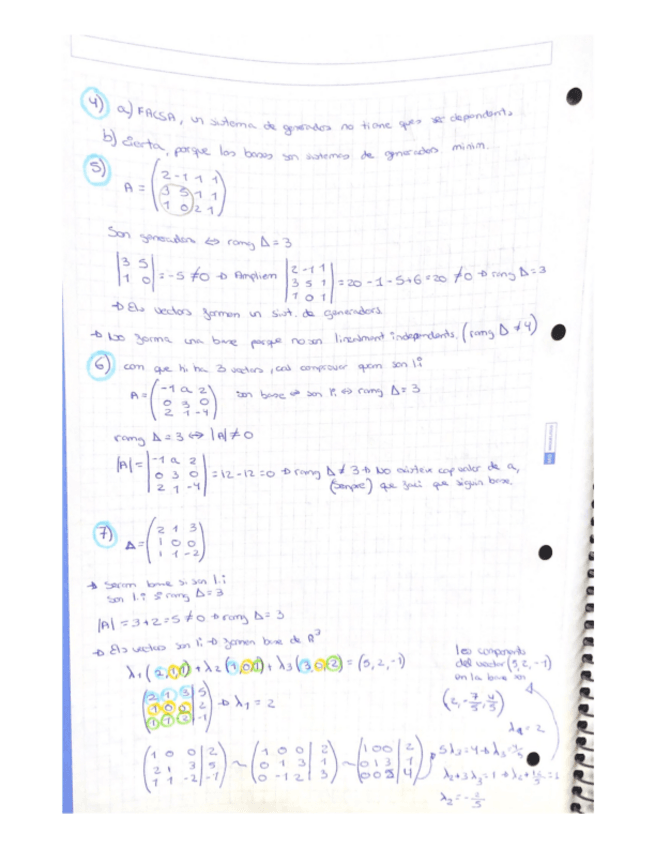 4) a) FALSA, un sistema de generadors no tiene ques ser dependents
b) Certa, porque las bases son sistemes de generados minim.
5)
A = (2 -1 1 1
3 5 1 1
1 0 2 1)
Son generadors ⇔ rang A = 3
|3 5
1 0| = -5 ≠ 0 → Ampliem |2 -1 1
3 5 1
1 0 1| = 20 - 1 - 5 + 6 = 20 ≠ 0 → rang A = 3
→ Els vectors formen un sist. de generadors
→ No forma una base porque no son linealment independents. (rang A ≠ 4)
6) com que hi ha 3 vectors, cal comprovar quan son l.i
A = (-1 a 2
0 3 0
2 1 -4) son base ⇔ son l.i. ⇔ rang A = 3
rang A = 3 ⇔ |A| ≠ 0
|A| = |-1 a 2
0 3 0
2 1 -4| = 12 - 12 = 0 → rang A ≠ 3 → No existeix cap valor de a,
(sempre) que faci que siguin base.
7) A = (2 1 3
1 0 0
1 1 -2)
→ Seran base si son l.i
son l.i si rang A = 3
|A| = 3 + 2 = 5 ≠ 0 → rang A = 3
→ Els vectors son l.i → formen base de R³
λ₁(2,1,1) + λ₂(1,0,1) + λ₃(3,0,2) = (5,2,-1)
(2 1 3 | 5
1 0 0 | 2
1 1 -2 | -1) → λ₁ = 2
(1 0 0 | 2
2 1 3 | 5
1 1 -2 | -1) ~ (1 0 0 | 2
0 1 3 | 1
0 -1 2 | 3) ~ (1 0 0 | 2
0 1 3 | 1
0 0 5 | 4)
les components
del vector (5,2,-1)
en la base son
(2, -7/5, 4/5)
λ₁ = 2
5λ₃ = 4 → λ₃ =
λ₂ + 3λ₃ = 1 →
λ₂ = -